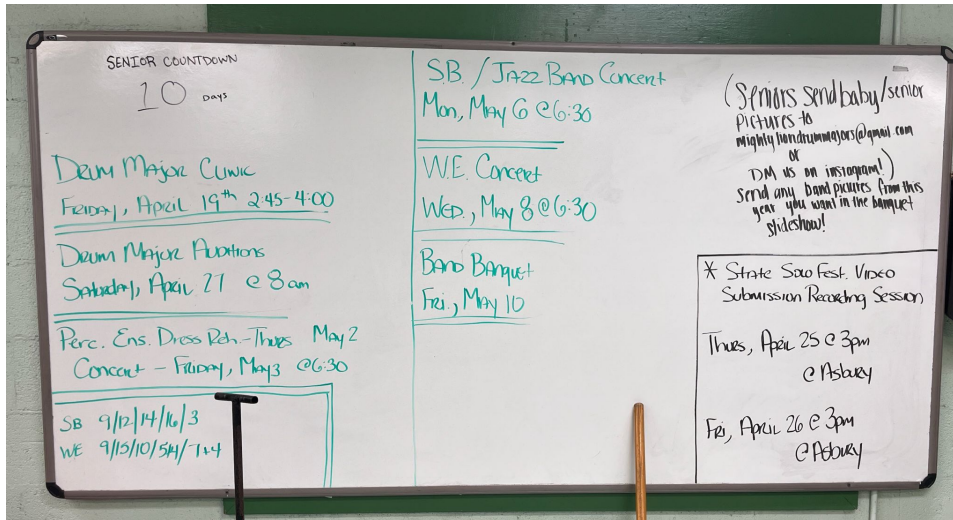 SENIOR COUNTDOWN
10 DAYS
DRUM MAJOR CLINIC
FRIDAY, APRIL 19th 2:45-4:00
DRUM MAJOR AUDITIONS
SATURDAY, APRIL 27 @ 8am
PERC. ENS. DRESS REH.-THURS MAY 2
CONCERT - FRIDAY, MAY 3 @6:30
SB 9/12/14/16/3
WE 9/15/10/5
S.B. / JAZZ BAND CONCERT
MON, MAY 6 @6:30
W.E. CONCERT
WED., MAY 8 @6:30
BAND BANQUET
FRI., MAY 10
(Seniors send baby/senior
pictures to
mightyliondrummajors@gmail.com
or
DM us on instagram!)
Send any band pictures from this
year you want in the banquet
slideshow!
* STATE SOLO FEST. VIDEO
SUBMISSION RECORDING SESSION
THURS, APRIL 25 @ 3pm
@ ASBURY
FRI, APRIL 26 @ 3pm
@ ASBURY